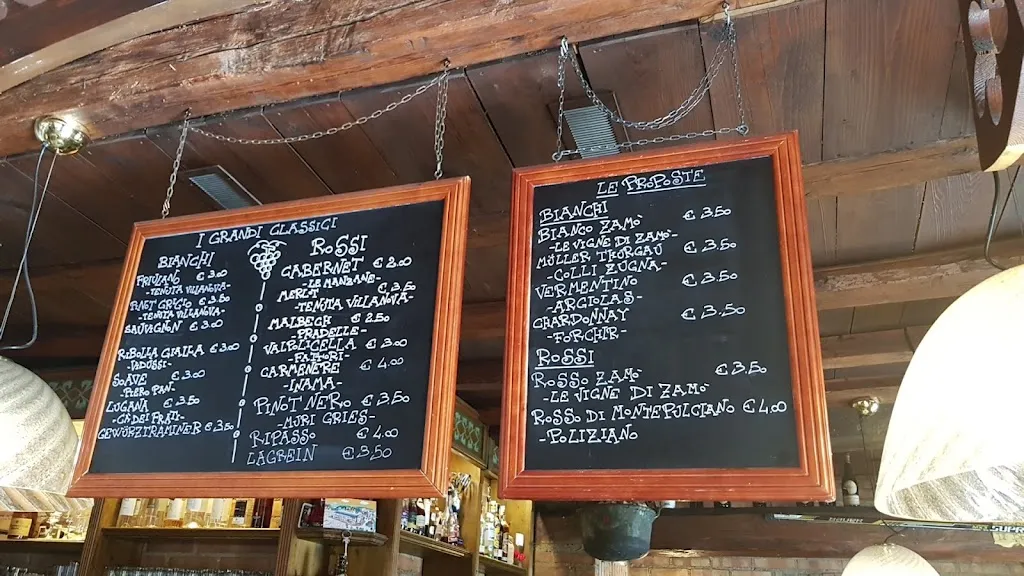 I GRANDI CLASSICI
BIANCHI
FRIULANO € 3.00
-TENUTA VILLANOVA-
PINOT GRIGIO € 3.50
-TENUTA VILLANOVA-
SAUVIGNON € 3.00
RIBOLLA GIALLA € 3.00
-VADUSSI-
SOAVE € 3.00
-PIEROPAN-
LUGANA € 3.50
-CÀ DEI FRATI-
GEWÜRZTRAMINER € 3.50
ROSSI
CABERNET € 2.00
-LE MANZANE-
MERLOT € 3.50
-TENUTA VILLANOVA-
MALBECH € 2.50
-PRADELLE-
VALPOLICELLA € 3.00
-FATTORI-
CARMENERE € 4.00
-INAMA-
PINOT NERO € 3.50
-MURI GRIES-
RIPASSO € 4.00
LAGREIN € 3,50
LE PROPOSTE
BIANCHI
BIANCO ZAMÒ € 3.50
-LE VIGNE DI ZAMÒ-
MÜLLER THORGAU € 3.50
-COLLI ZUGNA-
VERMENTINO € 3.50
-ARGIOLAS-
CHARDONNAY € 3.50
-FORCHIR-
ROSSI
ROSSO ZAMÒ € 3.50
-LE VIGNE DI ZAMÒ
ROSSO DI MONTEPULCIANO € 4.00
-POLIZIANO